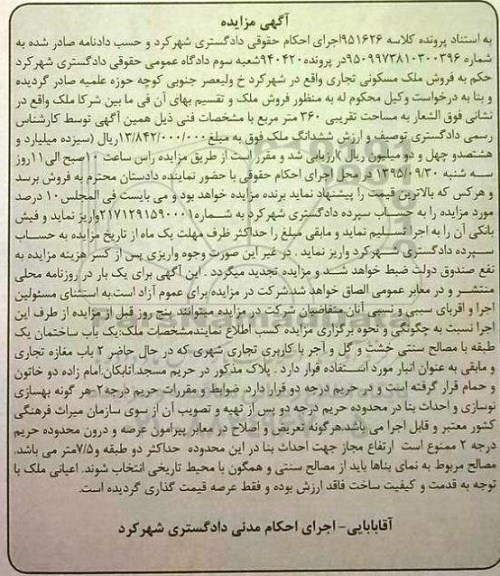 آگهی مزایده
به استناد پرونده کلاسه ۹۵۱۶۲۶اجرای احکام حقوقی دادگستری شهرکرد و حسب دادنامه صادر شده به
شماره ۹۵۰۹۹۷۳۸۱۰۳۰۰۳۹۶در پرونده۹۴۰۴۲۰شعبه سوم دادگاه عمومی حقوقی دادگستری شهرکرد
حکم به فروش ملک مسکونی تجاری واقع در شهرکرد خ ولیعصر جنوبی کوچه حوزه علمیه صادر گردیده
و بنا به درخواست وکیل محکوم له به منظور فروش ملک و تقسیم بهای آن فی ما بین شرکا ملک واقع در
نشانی فوق الشعار به مساحت تقریبی ۳۶۰ متر مربع با مشخصات فنی ذیل همین آگهی توسط کارشناس
رسمی دادگستری توصیف و ارزش ششدانگ ملک فوق به مبلغ۱۳/۸۴۲/۰۰۰/۰۰۰ریال (سیزده میلیارد و
هشتصدو چهل و دو میلیون ریال )ارزیابی شد و مقرر است از طریق مزایده راس ساعت ۱۰صبح الی۱۱روز
سه شنبه ۱۳۹۵/۰۹/۳۰ در محل اجرای احکام حقوقی با حضور نماینده دادستان محترم به فروش برسد
و هرکس که بالاترین قیمت را پیشنهاد نماید برنده مزایده خواهد بود و می بایست فی المجلس ۱۰ درصد
مورد مزایده را به حساب سپرده دادگستری شهرکرد به شماره۲۱۷۱۲۹۱۵۹۰۰۰۱واریز نماید و فیش
بانکی آن را به اجرا تسلیم نماید و مابقی مبلغ را حداکثر ظرف مهلت یک ماه از تاریخ مزایده به حساب
سپرده دادگستری شهرکرد واریز نماید . در غیر این صورت وجوه واریزی پس از کسر هزینه مزایده به
نفع صندوق دولت ضبط خواهد شد و مزایده تجدید میگردد . این آگهی برای یک بار در روزنامه محلی
منتشر و در معابر عمومی الصاق خواهد شد.شرکت در مزایده برای عموم آزاد است.به استثنای مسئولین
اجرا و اقربای سببی و نسبی آنان.متقاضیان شرکت در مزایده میتوانند پنج روز قبل از مزایده از طرف این
اجرا نسبت به چگونگی و نحوه برگزاری مزایده کسب اطلاع نمایندمشخصات ملک:یک باب ساختمان یک
طبقه با مصالح سنتی خشت و گل و آجر با کاربری تجاری شهری که در حال حاضر ۲ باب مغازه تجاری
و مابقی به عنوان انبار مورد استفاده قرار دارد . پلاک مذکور در حریم مسجدآتابکان،امام زاده دو خاتون
و حمام قرار گرفته است و در حریم درجه دو قرار دارد. ضوابط و مقررات حریم درجه۲-هر گونه بهسازی
نوسازی و احداث بنا در محدوده حریم درجه دو پس از تهیه و تصویب آن از سوی سازمان میراث فرهنگی
کشور معتبر و قابل اجرا می باشد.هرگونه تعریض و اصلاح در معابر پیرامون عرصه و درون محدوده حریم
درجه ۲ ممنوع است ارتفاع مجاز جهت احداث بنا در این محدوده حداکثر دو طبقه و۷/۵متر می باشد.
مصالح مربوط به نمای بناها باید از مصالح سنتی و همگون با محیط تاریخی انتخاب شوند. اعیانی ملک با
توجه به قدمت و کیفیت ساخت فاقد ارزش بوده و فقط عرصه قیمت گذاری گردیده است.
آقابابایی- اجرای احکام مدنی دادگستری شهرکرد